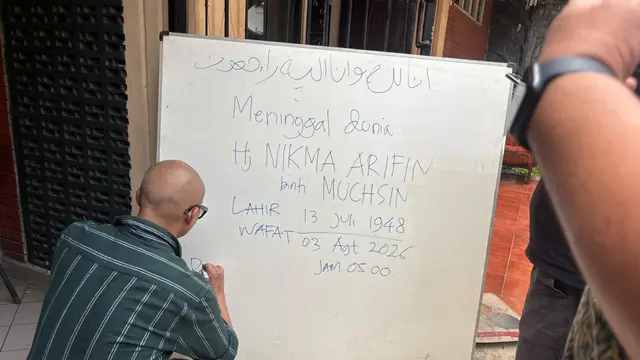 انا لله وانا اليه راجعون
Meninggal dunia
Hj NIKMA ARIFIN
binti MUCHSIN
LAHIR 13 Juli 1948
WAFAT 03 Agt 2026
JAM 05.00